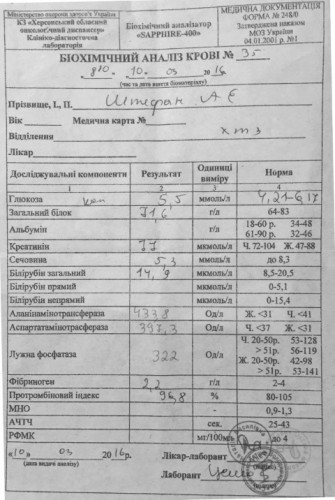 Міністерство охорони здоров'я України
КЗ «Херсонський обласний
онкологічний диспансер»
Клініко-діагностична
лабораторія
Біохімічний аналізатор
«SAPPHIRE-400»
МЕДИЧНА ДОКУМЕНТАЦІЯ
ФОРМА № 248/0
Затверджена наказом
МОЗ України
04.01.2001 р. №1
БІОХІМІЧНИЙ АНАЛІЗ КРОВІ № 35
8 10 . 10 . 03 2016
(час та дата взяття біоматеріалу)
Прізвище, І., П. Штефан А Є
Вік Медична карта №
Відділення хтз
Лікар
Досліджувальні компоненти Результат Одиниці виміру Норма
1 2 3 4
Глюкоза кап 5,5 ммоль/л 4,21-6,17
Загальний білок 71,6 г/л 64-83
Альбумін г/л 18-60 р. 34-48
61-90 р. 32-46
Креатинін 77 мкмоль/л Ч. 72-104 Ж. 47-88
Сечовина 5,3 ммоль/л до 8,3
Білірубін загальний 14,9 мкмоль/л 8,5-20,5
Білірубін прямий мкмоль/л 0-5,1
Білірубін непрямий мкмоль/л 0-15,4
Аланінамінотрасфераза 433,8 Од/л Ж. <31 Ч. <41
Аспартатамінотрасфераза 397,3 Од/л Ч. <37 Ж. <31
Лужна фосфатаза 322 Од/л Ч. 20-50р. 53-128
>51р. 56-119
Ж. 20-50р. 42-98
>51р. 53-141
Фібриноген 2,2 г/л 2-4
Протромбіновий індекс 96,8 % 80-105
МНО - 0,9-1,3
АЧТЧ сек. 25-43
РФМК мг/100мл до 4
«10» 03 2016р.
(дата видачі аналізу)
Лікар-лаборант
Лаборант
(підпис)